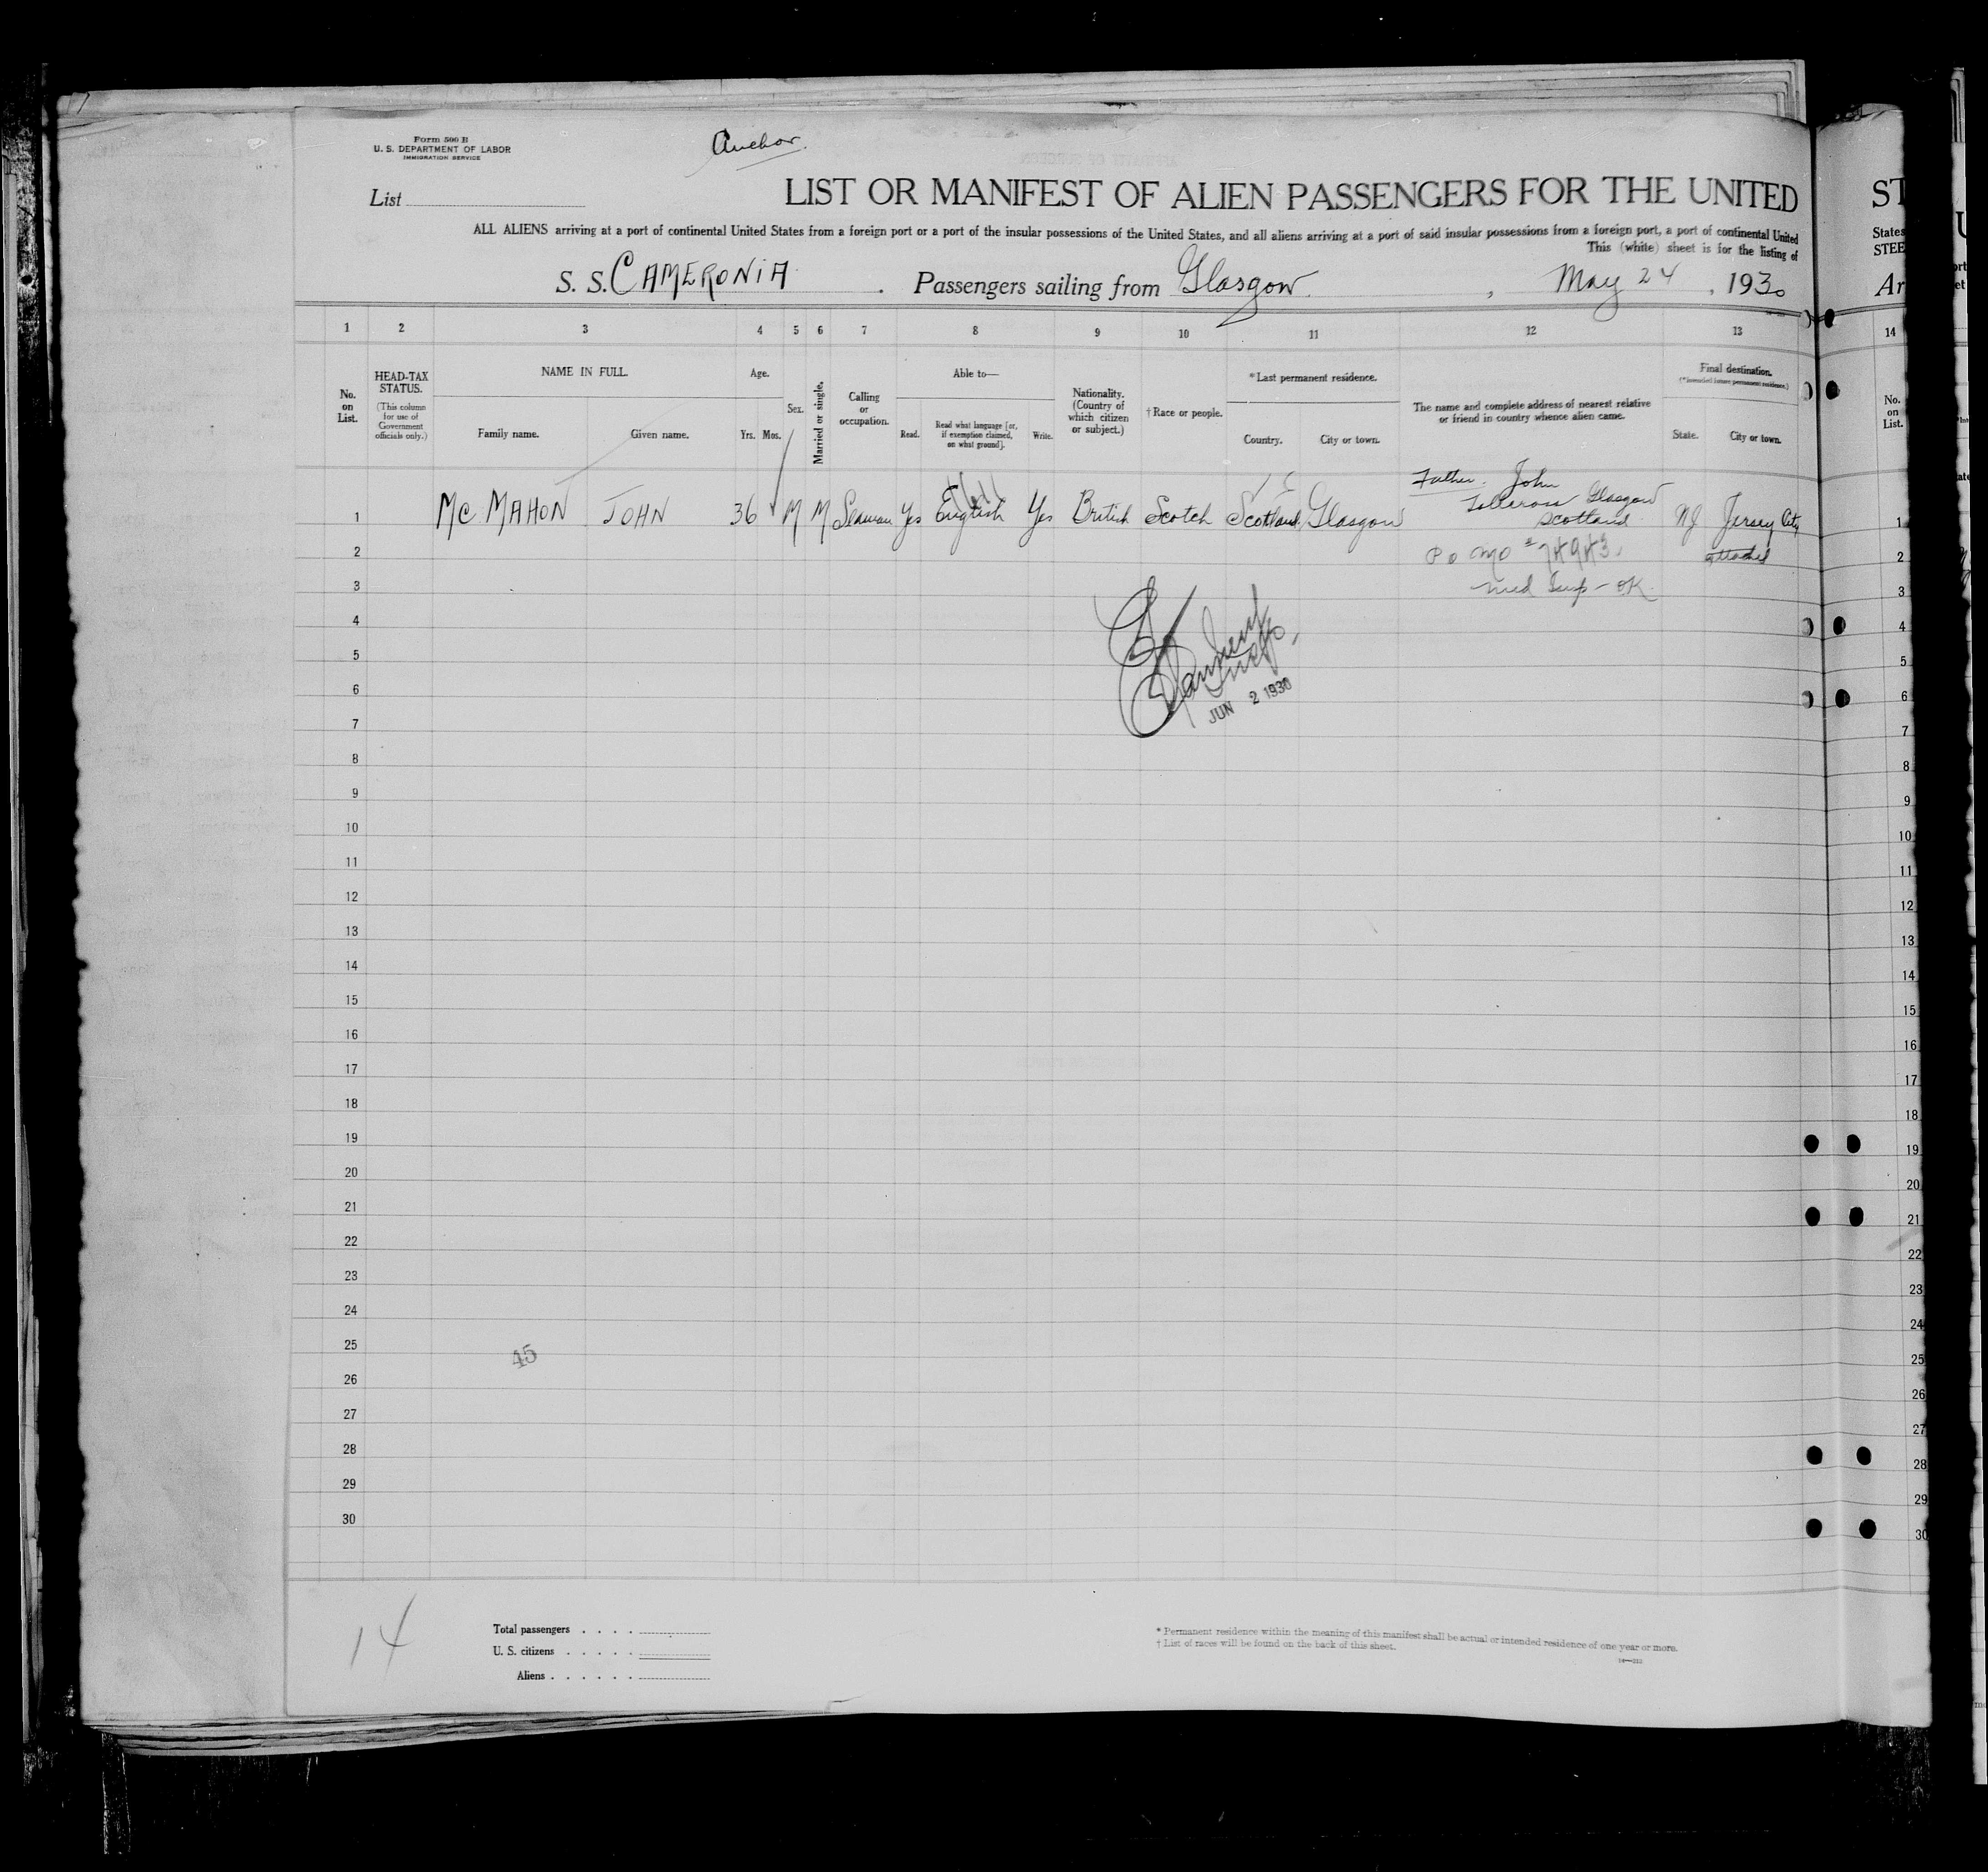 Form 500 B
U. S. DEPARTMENT OF LABOR
IMMIGRATION SERVICE
Anchor.
List
LIST OR MANIFEST OF ALIEN PASSENGERS FOR THE UNITED
ST
ALL ALIENS arriving at a port of continental United States from a foreign port or a port of the insular possessions of the United States, and all aliens arriving at a port of said insular possessions from a foreign port, a port of continental United
States
This (white) sheet is for the listing of
STEE
S. S. CAMERONIA. Passengers sailing from Glasgow, May 24, 1930
Ar
1 2 3 4 5 6 7 8 9 10 11 12 13 14
No. on List.
HEAD-TAX STATUS.
(This column for use of Government officials only.)
NAME IN FULL.
Family name. Given name.
Age.
Yrs. Mos.
Sex.
Married or single.
Calling or occupation.
Able to—
Read. Read what language [or, if exemption claimed, on what ground]. Write.
Nationality. (Country of which citizen or subject.)
†Race or people.
*Last permanent residence.
Country. City or town.
The name and complete address of nearest relative or friend in country whence alien came.
Final destination.
(*Intended future permanent residence.)
State. City or town.
No. on List.
Father. John
1 McMAHON JOHN 36 M M Seaman Yes English Yes British Scotch Scotland Glasgow Tollcross Glasgow Scotland NJ Jersey City 1
2 attached 2
3 Med Insp - OK. 3
4 4
5 5
6 6
JUN 2 1930
7 7
8 8
9 9
10 10
11 11
12 12
13 13
14 14
15 15
16 16
17 17
18 18
19 19
20 20
21 21
22 22
23 23
24 24
25 25
45
26 26
27 27
28 28
29 29
30 30
14
Total passengers . . . .
U. S. citizens . . . . .
Aliens . . . . . .
* Permanent residence within the meaning of this manifest shall be actual or intended residence of one year or more.
† List of races will be found on the back of this sheet.